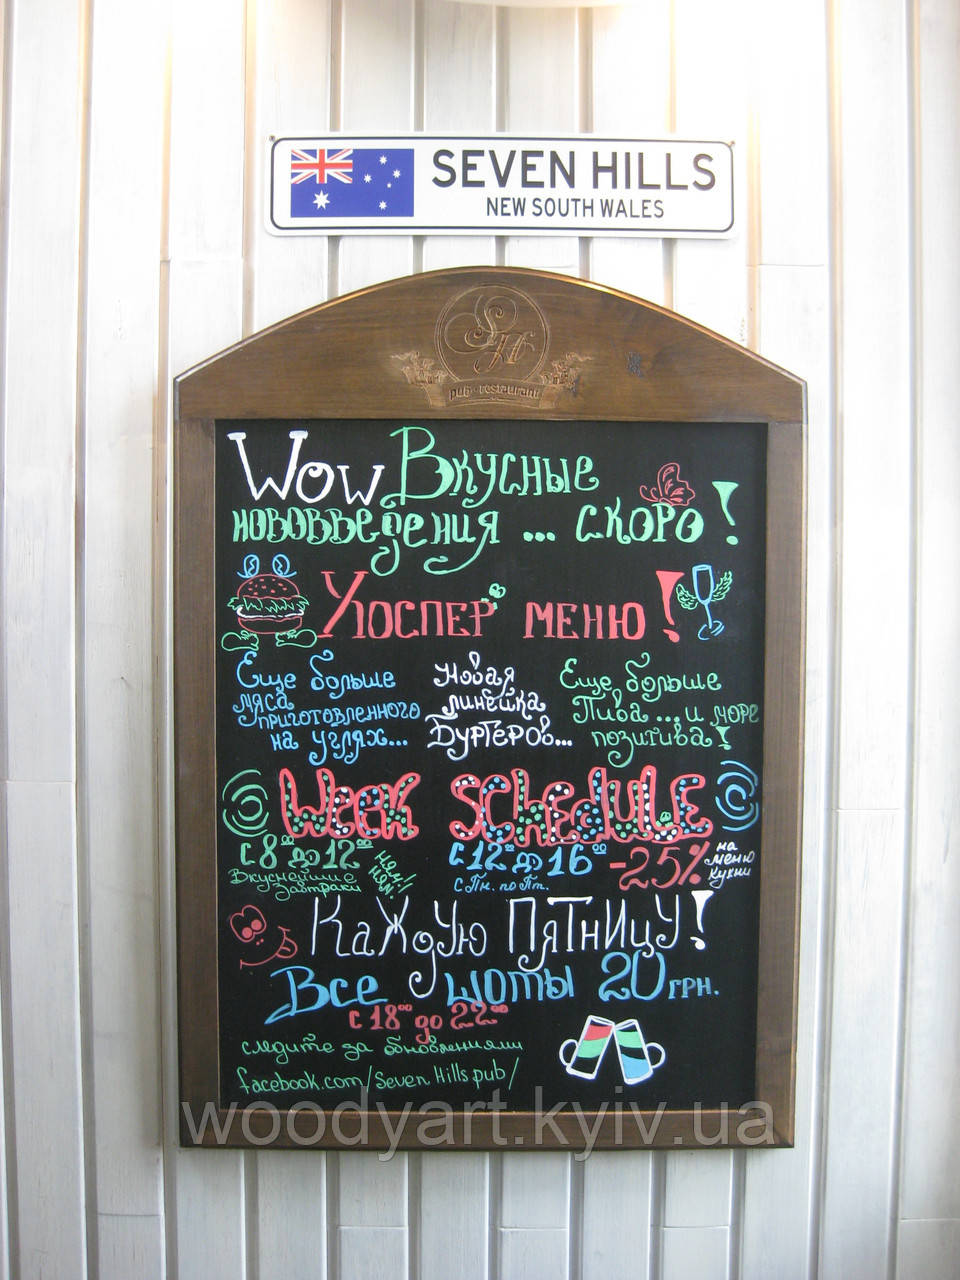 SEVEN HILLS
NEW SOUTH WALES
SH
pub-restaurant
Wow Вкусные
нововведения ... скоро!
Хоспер меню!
Еще больше
мяса
приготовленного
на углях...
Новая
линейка
Бургеров...
Еще больше
Пива ... и море
позитива!
Week Schedule
с 8⁰⁰ до 12⁰⁰
Вкуснейшие
завтраки
ням!
ням
с 12⁰⁰ до 16⁰⁰
с Пн. по Пт.
-25% на
меню
кухни
Каждую Пятницу!
Все шоты 20 грн.
с 18⁰⁰ до 22⁰⁰
следите за обновлениями
facebook.com/Seven Hills pub/
woodyart.kyiv.ua